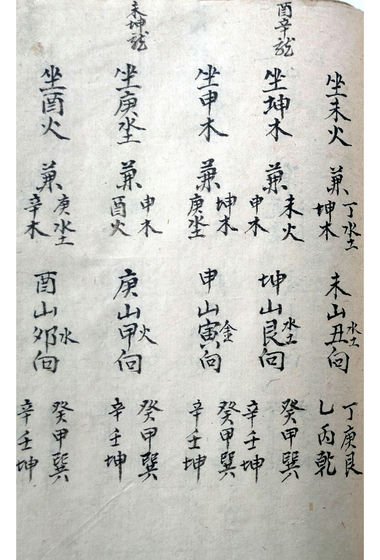 坐未火兼丁水土坤木未山丑水土向丁庚艮乙丙乾
酉辛龍
坐坤木兼未火申木坤山艮水土向癸甲巽辛壬坤
坐申木兼坤木庚水土申山寅金向癸甲巽辛壬坤
未坤龍
坐庚水土兼申木酉火庚山甲火向癸甲巽辛壬坤
坐酉火兼庚水土辛木酉山夘水向癸甲巽辛壬坤